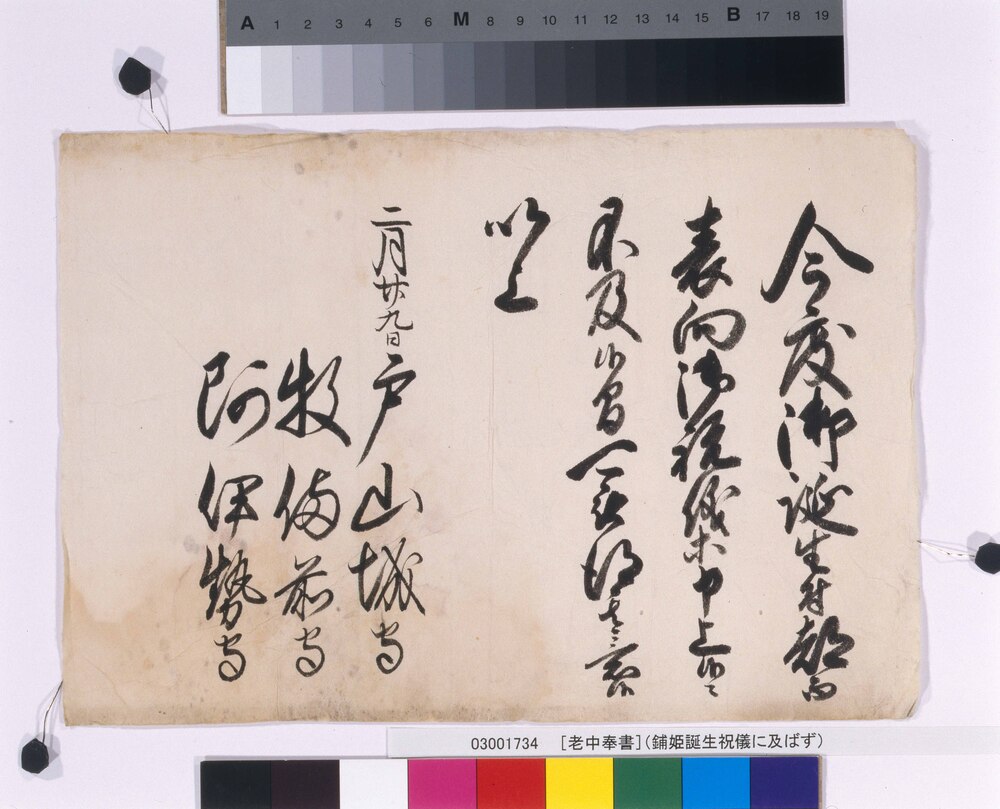 A 1 2 3 4 5 6 M 8 9 10 11 12 13 14 15 B 17 18 19
今度御誕生付都而
表向御祝儀等申上候ニ
不及候間可被得其意候
以上
二月廿九日 戸山城守
牧備前守
阿伊勢守
03001734 [老中奉書](鋪姫誕生祝儀に及ばず)